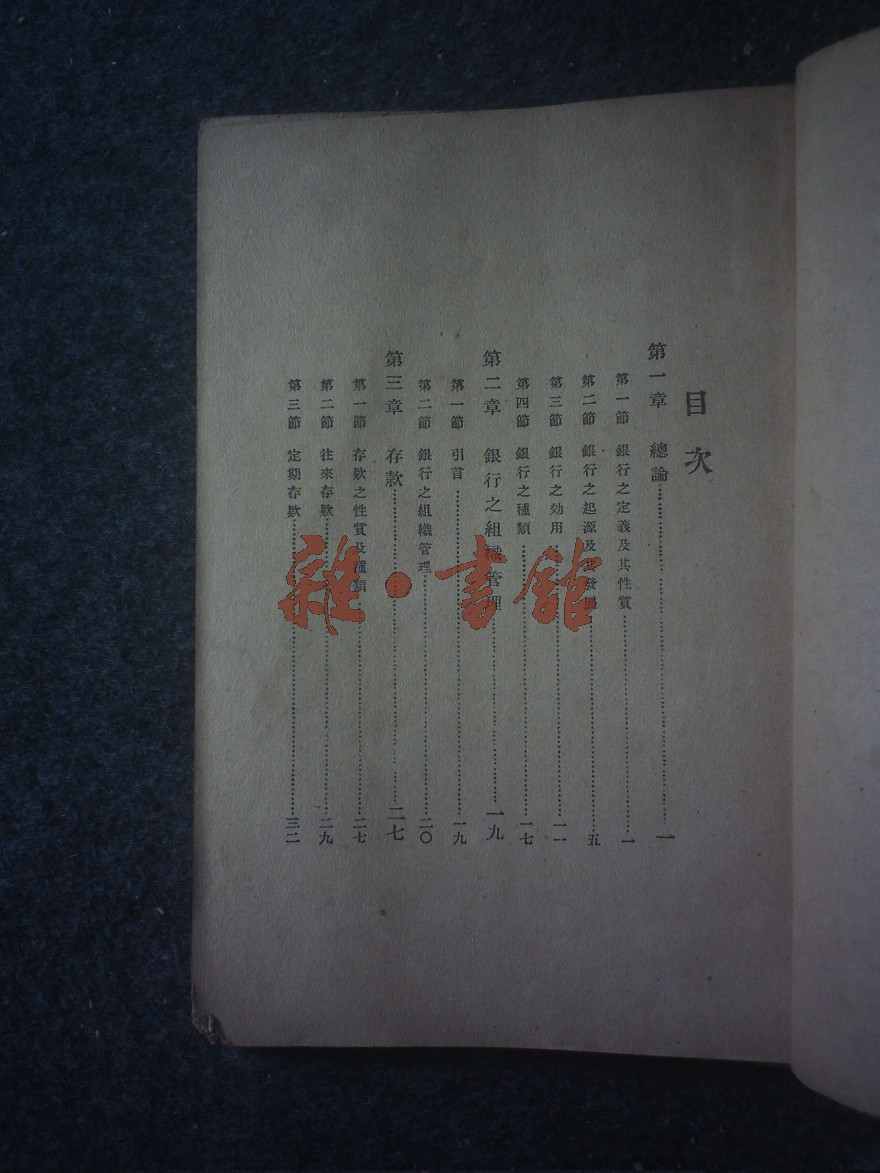 目次
第一章 總論 一
第一節 銀行之定義及其性質 一
第二節 銀行之起源及其發展 五
第三節 銀行之効用 一一
第四節 銀行之種類 一七
第二章 銀行之組織管理 一九
第一節 引言 一九
第二節 銀行之組織管理 二〇
第三章 存款 二七
第一節 存款之性質及種類 二七
第二節 往來存款 二九
第三節 定期存款 三二
雜·書館